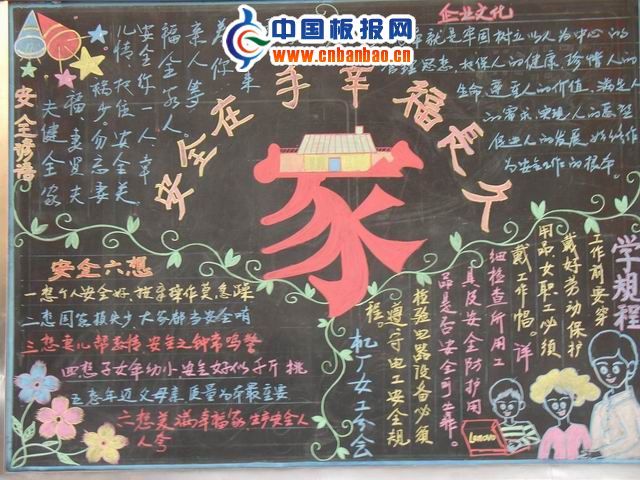 中国板报网
www.cnbanbao.cn
企业文化
就是牢固树立以人为中心的
管理思想,
的健康,珍惜人的
生命,尊重人的价值,满足人
的需求,实现人的愿望
促进人的发展,始终作
为安全工作的根本。
安全在手幸福长久
家
安全谚语
夫健全家
福妻贤夫
杨少勿忘妻
儿情找佳安全美
安全你一人,幸
福全家人。
亲人等
盼你来
安全六想
一想个人安全好,按章操作莫急躁
二想国家损失少大家都当安全哨
三想妻儿帮教情,安全之钟常鸣警
四想子女年幼小安全好似千斤挑
五想年迈父母亲质量为本最重要
六想美满幸福家生产安全人
人夸
学规程
工作前要穿
戴好劳动保护
用品,女职工必须
戴工作帽。详
细检查所用工
具及安全防护用
品是否安全可工靠。
检验电器设备必须
遵守电工安全规
程。
机厂女工分会
Lenovo